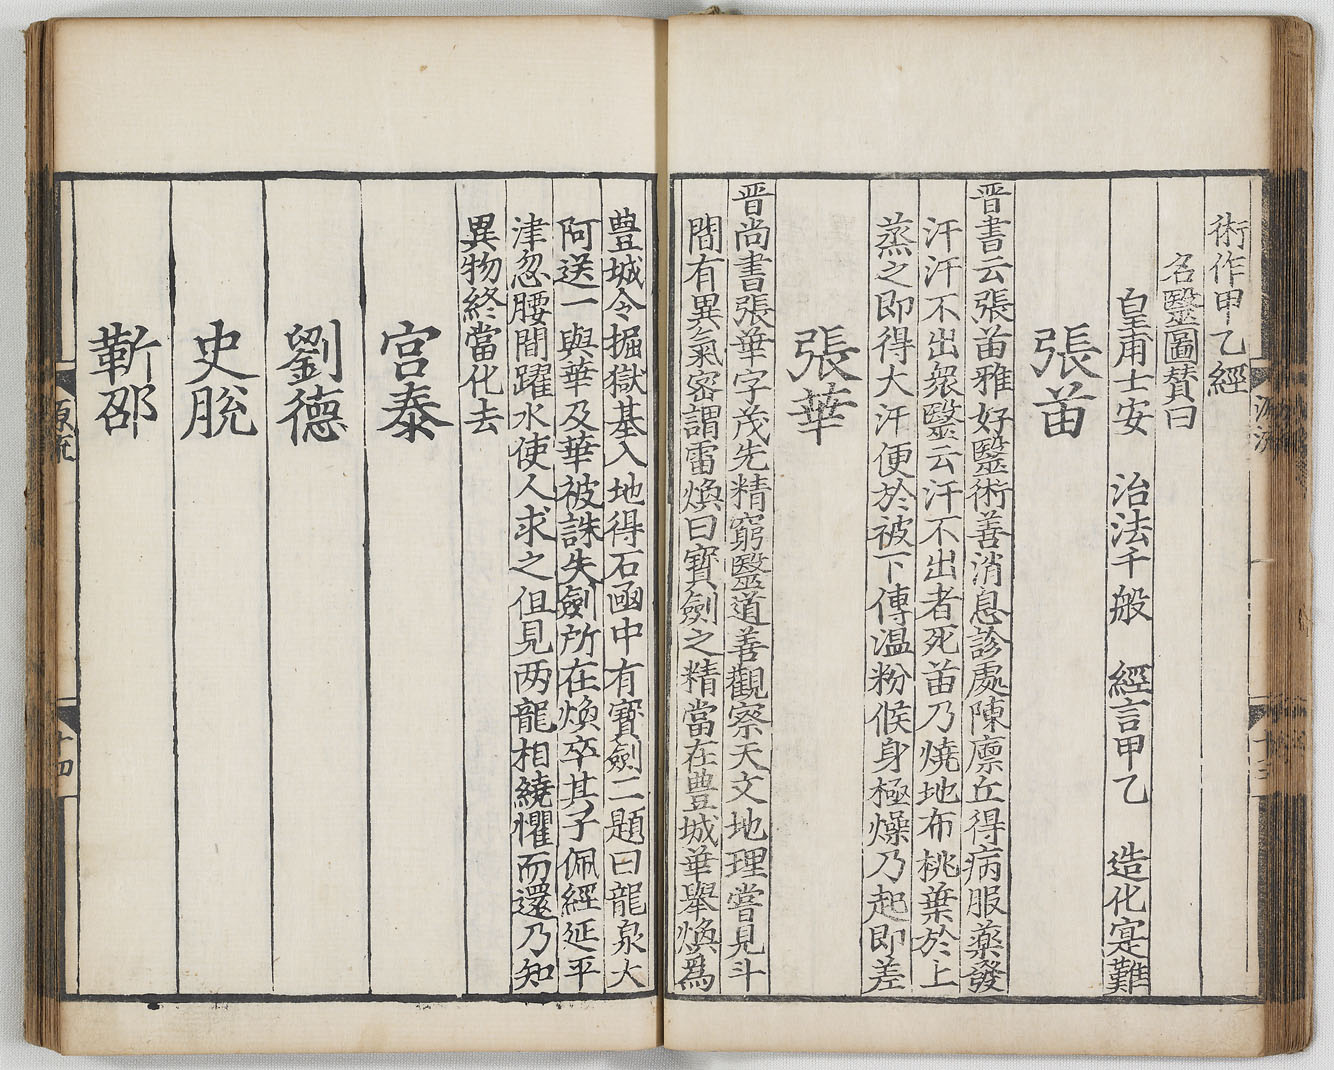 術作甲乙經
名醫圖賛曰
皇甫士安　治法千般　經言甲乙　造化寔難
張苗
晋書云張苗雅好醫術善消息診處陳廪丘得病服藥發
汗汗不出衆醫云汗不出者死苗乃燒地布桃葉於上
蒸之即得大汗便於被下傅温粉候身極燥乃起即差
張華
晋尚書張華字茂先精窮醫道善觀察天文地理嘗見斗
間有異氣密謂雷煥曰寶劍之精當在豊城華舉煥爲
豊城令掘獄基入地得石凾中有寶劍二題曰龍泉大
阿送一與華及華被誅失劍所在煥卒其子佩經延平
津忽腰間躍水使人求之但見两龍相繞懼而還乃知
異物終當化去
宫泰
劉德
史脫
靳邵
原流
十四